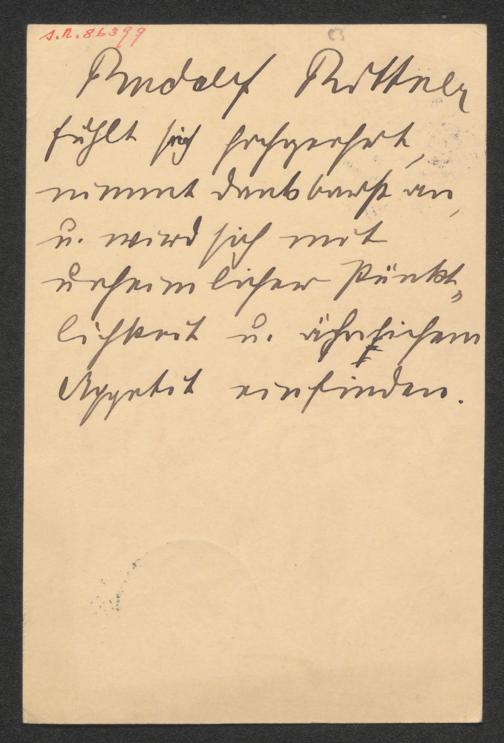 J.N. 86399
Rudolf Rittner
fühlt sich hochgeehrt,
nimmt dankbarst an
u. wird sich mit
unheimlicher Pünkt„
lichkeit u. ähnlichem
Appetit einfinden.